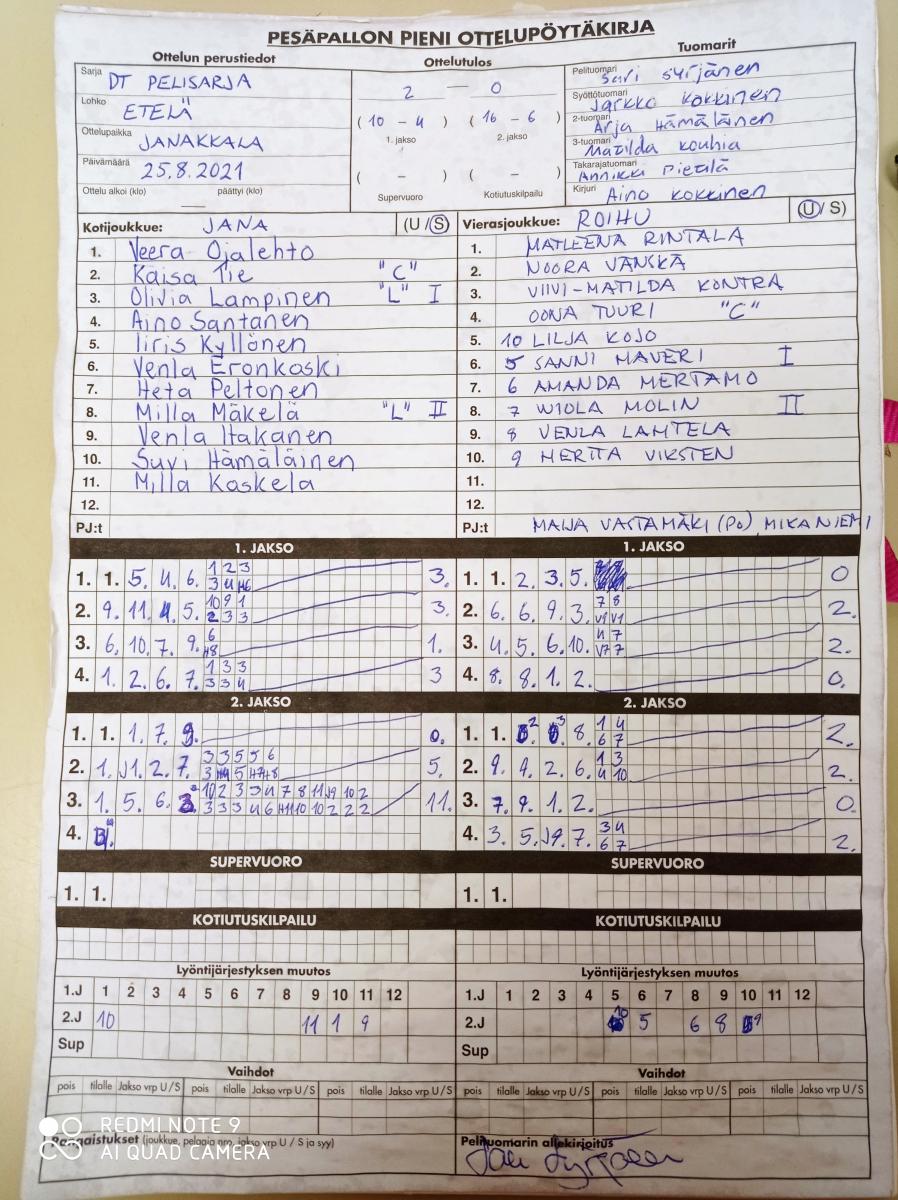 PESÄPALLON PIENI OTTELUPÖYTÄKIRJA
Ottelun perustiedot
Ottelutulos
Tuomarit
Sarja DT PELISARJA
Lohko ETELÄ
Ottelupaikka JANAKKALA
Päivämäärä 25.8.2021
Ottelu alkoi (klo) päättyi (klo)
2 — 0
(10 - 4) (16 - 6)
1. jakso 2. jakso
( - ) ( - )
Supervuoro Kotiutuskilpailu
Pelituomari Sari Syrjänen
Syöttötuomari Jarkko Kokkinen
2-tuomari Arja Hämäläinen
3-tuomari Matilda Kouhia
Takarajatuomari Annikki Pietilä
Kirjuri Aino Kokkinen
Kotijoukkue: JANA (U/S)
1. Veera Ojalehto
2. Kaisa Tie "C"
3. Olivia Lampinen "L" I
4. Aino Santanen
5. Iiris Kyllönen
6. Venla Eronkoski
7. Heta Peltonen
8. Milla Mäkelä "L" II
9. Venla Itakanen
10. Suvi Hämäläinen
11. Milla Kaskela
12.
PJ:t
Vierasjoukkue: ROIHU (U/S)
1. MATLEENA RINTALA
2. NOORA VÄNSKÄ
3. VIIVI-MATILDA KONTRA
4. OONA TUURI "C"
5. 10 LILJA KOJO
6. 5 SANNI MAVERI I
7. 6 AMANDA MERTAMO
8. 7 WIOLA MOLIN II
9. 8 VENLA LAHTELA
10. 9 HERTTA VIKSTEN
11.
12.
PJ:t MAIJA VASTAMÄKI (Po) MIKA NIEMI
1. JAKSO
1. 1. 5. 4. 6. 1 2 3 3.
2. 9. 11. 4. 5. 10 9 1 2 3 3 3.
3. 6. 10. 7. 9. 6 1.
4. 1. 2. 6. 7. 1 3 3 3 3 4 3
1. JAKSO
1. 1. 2. 3. 5. 0
2. 6. 6. 9. 3. 7 8 2.
3. 4. 5. 6. 10. 4 7 2.
4. 8. 8. 1. 2. 0.
2. JAKSO
1. 1. 1. 7. 9. 0.
2. 1. J1. 2. 7. 3 3 5 5 6 5.
3. 1. 5. 6. 3. 10 2 3 3 4 7 8 11 J9 10 2 11.
4.
2. JAKSO
1. 1. 8. 1 4 6 7 2.
2. 9. 9. 2. 6. 1 3 4 10 2.
3. 7. 9. 1. 2. 0
4. 3. 5. J9. 7. 3 4 6 7 2.
SUPERVUORO
1. 1.
SUPERVUORO
1. 1.
KOTIUTUSKILPAILU
KOTIUTUSKILPAILU
Lyöntijärjestyksen muutos
1.J 1 2 3 4 5 6 7 8 9 10 11 12
2.J 10 11 1 9
Sup
Lyöntijärjestyksen muutos
1.J 1 2 3 4 5 6 7 8 9 10 11 12
2.J 10 5 6 8 9
Sup
Vaihdot
pois tilalle Jakso vrp U/S pois tilalle Jakso vrp U/S pois tilalle Jakso vrp U/S
Vaihdot
pois tilalle Jakso vrp U/S pois tilalle Jakso vrp U/S pois tilalle Jakso vrp U/S
Rangaistukset (joukkue, pelaaja nro, jakso vrp U / S ja syy)
Pelituomarin allekirjoitus
REDMI NOTE 9
AI QUAD CAMERA